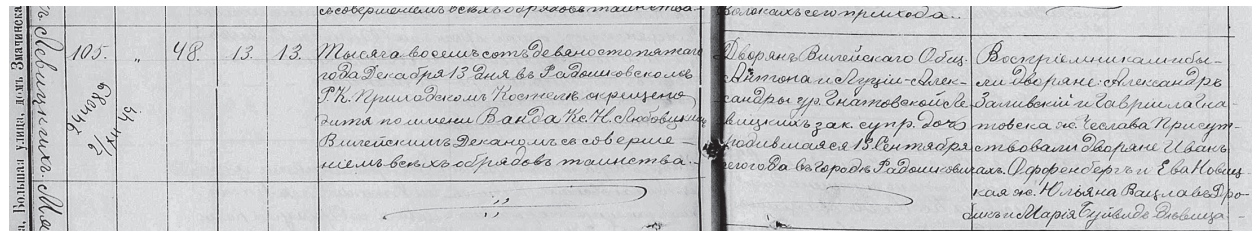 съ совершеніемъ всѣхъ обрядовъ таинства
волокахъ сего прихода..
а, Большая улица, домъ Змачинска
105. " 48. 13. 13.
Тысяча восемьсотъ девяностопятаго
года Декабря 13 дня въ Радошковскомъ
Р. К. Приходскомъ Костелѣ окрещено
дитя по имени Ванда Кс. Н. Любовицкимъ
Вилейскимъ Деканомъ съ соверше-
ніемъ всѣхъ обрядовъ таинства.
Дворянъ Вилейскаго Общ.
Антона и Луціи-Алек-
сандры ур. Гнатовской Ле-
вицкихъ зак. супр. дочь
родившаяся 13 Сентября
сего года въ городѣ Радошковичахъ.
Воспріемниками бы-
ли Дворяне: Александръ
Заливскій и Гавріила Гна-
товска ж. Чеслава Присут-
ствовали Дворяне Иванъ
Оффенбергъ и Ева Новиц-
кая ж. Юльяна Вацлавъ Дро-
и Марія